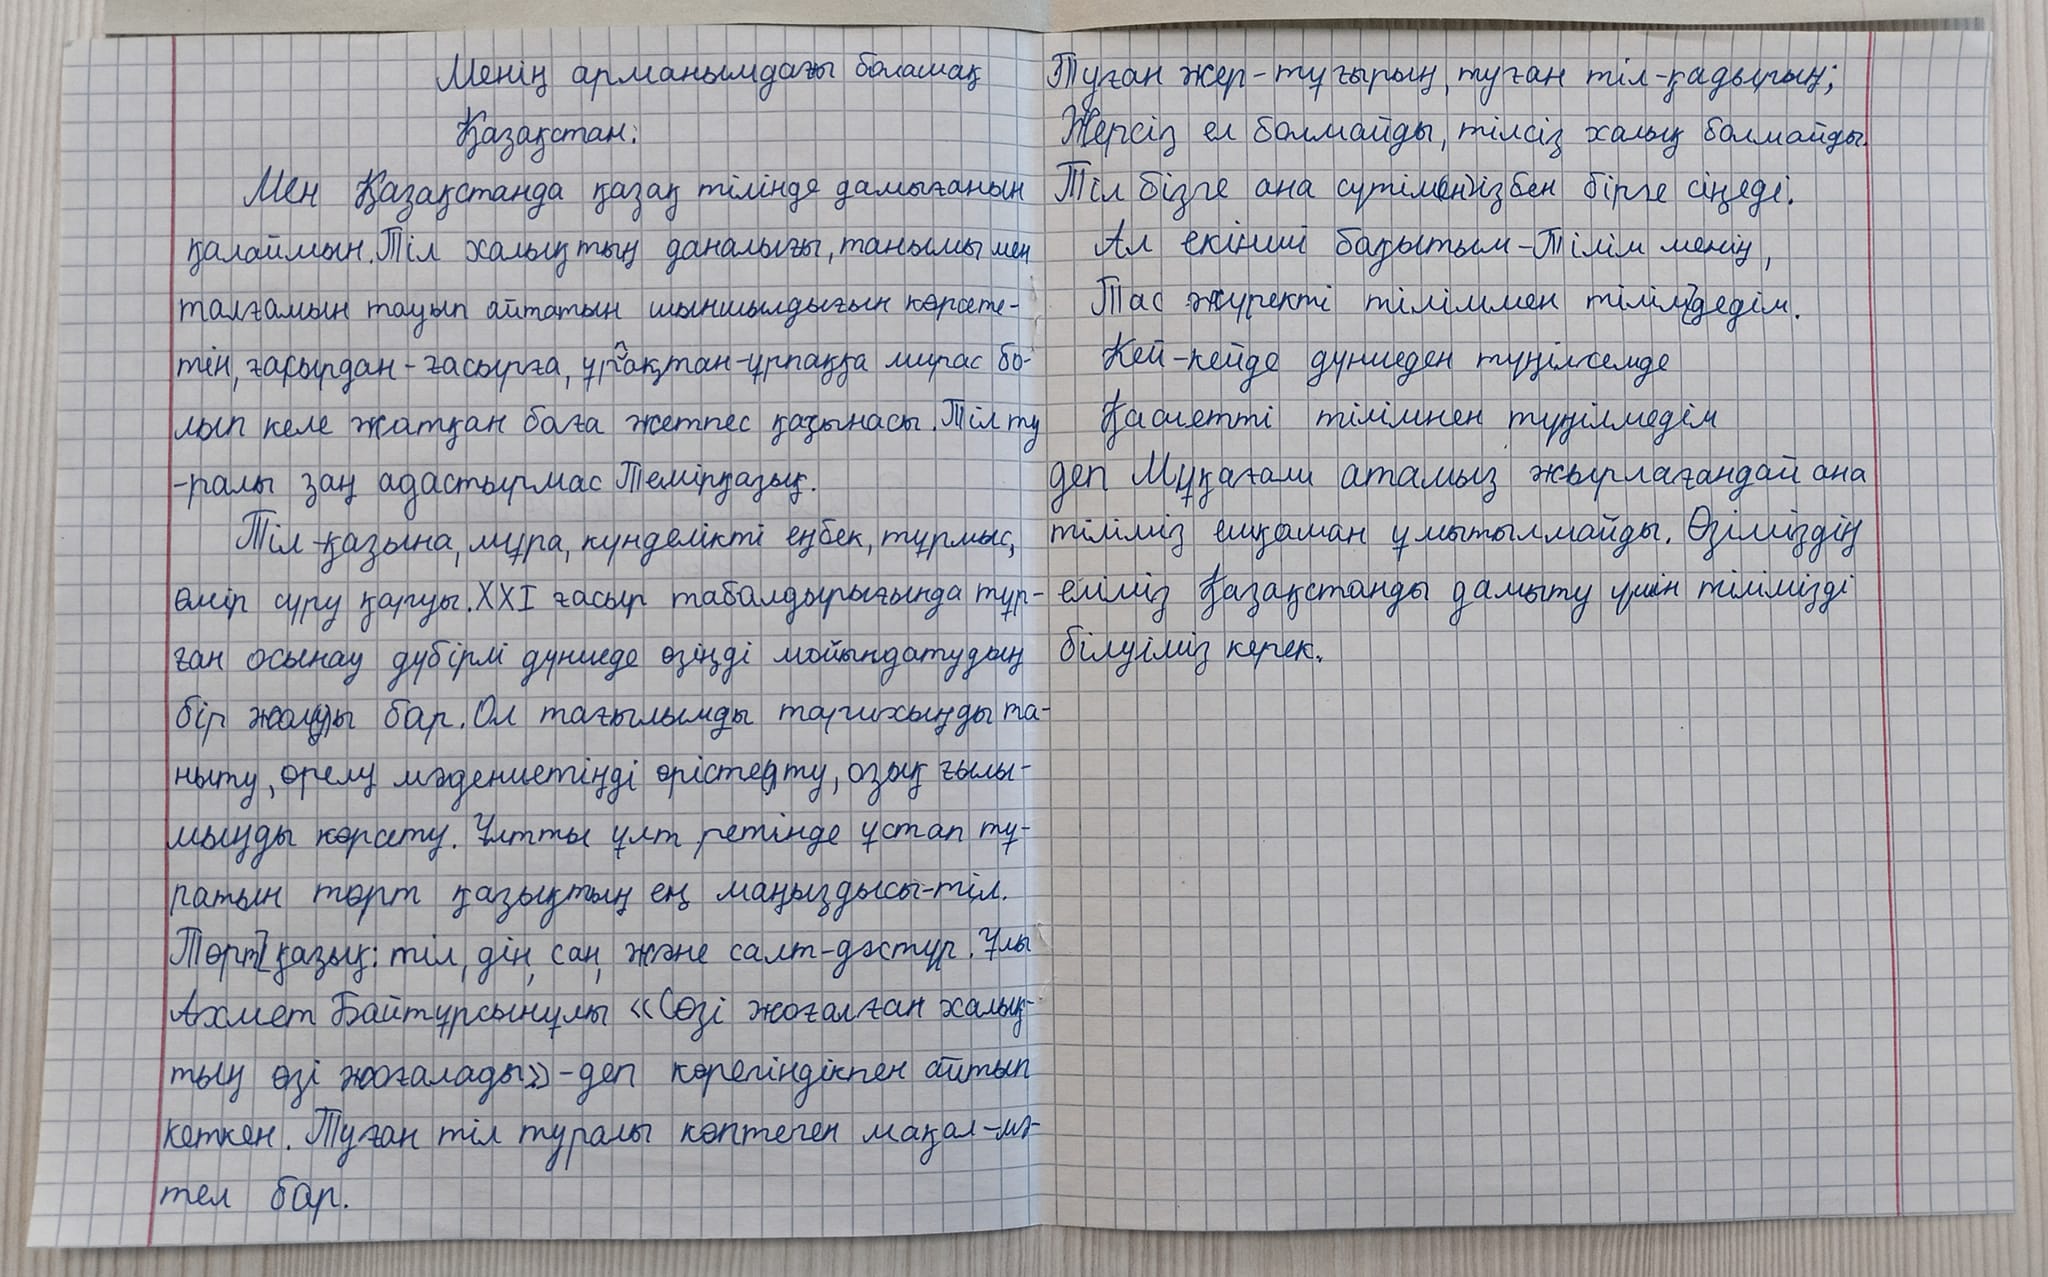 Менің арманымдағы болашақ
Қазақстан:
Мен Қазақстанда қазақ тілінде дамығанын
қалаймын. Тіл халықтың даналығы, танымы мен
талғамын тауып айтатын шыншылдығын көрсете-
тін, ғасырдан-ғасырға, ұрпақтан-ұрпаққа мирас бо-
лып келе жатқан баға жетпес қазынасы. Тіл ту
-ралы заң адастырмас Темірқазық.
Тіл-қазына, мұра, күнделікті еңбек, тұрмыс,
өмір сүру қаруы. XXI ғасыр табалдырығында тұр-
ған осынау дүбірлі дүниеде өзіңді мойындатудың
бір жолы бар. Ол тағылымды тарихыңды та-
ныту, өрелу мәдениетіңді өрістету, озық ғылы-
мыңды көрсету. Ұлтты ұлт ретінде ұстап тұ-
ратын төрт қазықтың ең маңыздысы-тіл.
Төрт қазық: тіл, дін, сан, және салт-дәстүр. Ұлы
Ахмет Байтұрсынұлы «Сөзі жоғалған халық-
тың өзі жоғалады»-деп көрегіндікпен айтып
кеткен. Туған тіл туралы көптеген мақал-мә-
тел бар.
Туған жер-тұғырың, туған тіл-қадырың;
Жерсіз ел болмайды, тілсіз халық болмайды.
Тіл бізге ана сүтімізбен бірге сіңеді.
Ал екінші бақытым-Тілім менің,
Тас жүректі тіліммен тілімдедім.
Кей-кейде дүниеден түңілсемде
Қасиетті тілімнен түңілмедім
деп Мұқағали атамыз жырлағандай ана
тіліміз ешқашан ұмытылмайды. Өзіміздің
еліміз Қазақстанды дамыту үшін тілімізді
білуіміз керек.